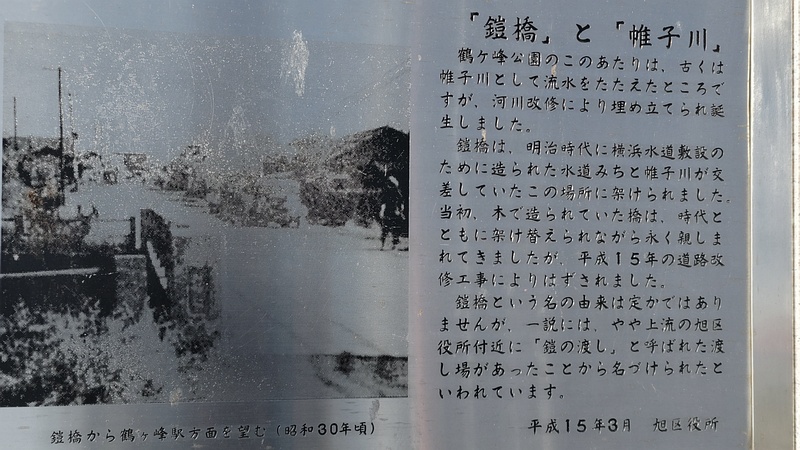 「鎧橋」と「帷子川」
鶴ケ峰公園のこのあたりは、古くは
帷子川として流水をたたえたところで
すが、河川改修により埋め立てられ誕
生しました。
鎧橋は、明治時代に横浜水道敷設の
ために造られた水道みちと帷子川が交
差していたこの場所に架けられました。
当初、木で造られていた橋は、時代と
ともに架け替えられながら永く親しま
れてきましたが、平成15年の道路改
修工事によりはずされました。
鎧橋という名の由来は定かではあり
ませんが、一説には、やや上流の旭区
役所付近に「鎧の渡し」と呼ばれた渡
し場があったことから名づけられたと
いわれています。
平成15年3月 旭区役所
鎧橋から鶴ヶ峰駅方面を望む(昭和30年頃)